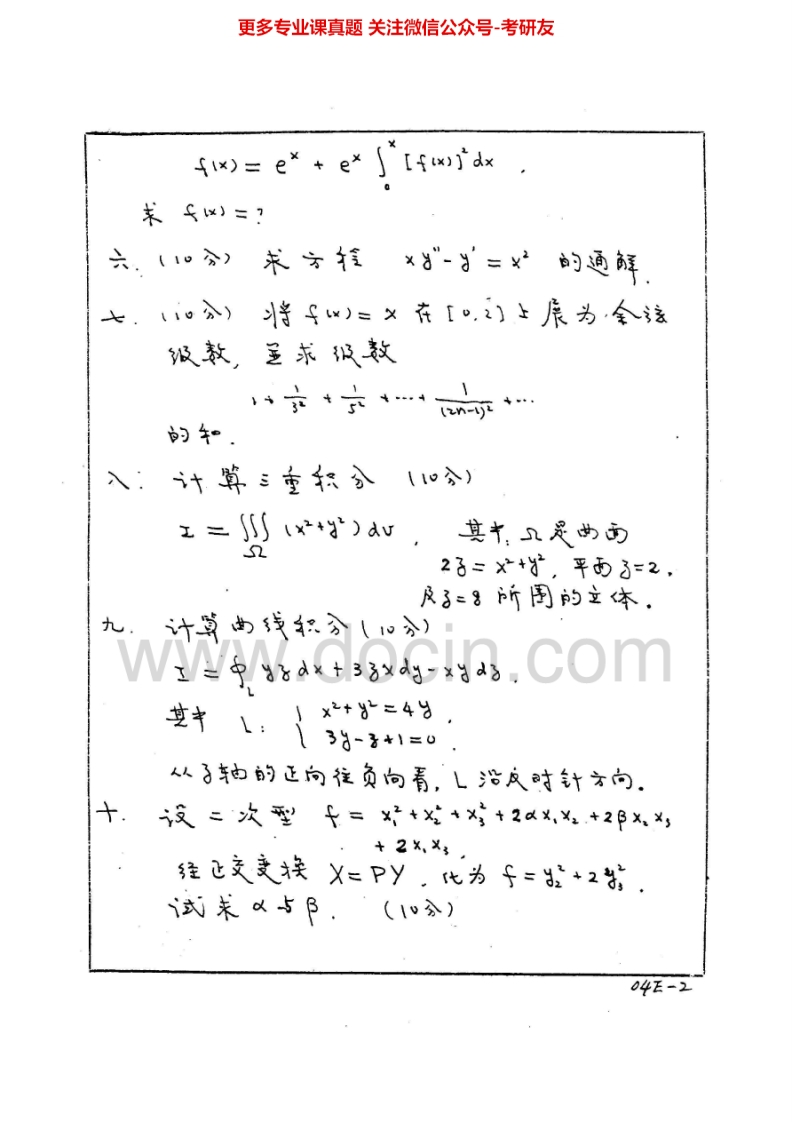 更多专业课真题 关注微信公众号-考研友
f(x) = e^x + e^x ∫_0^x [f(x)]² dx .
求 f(x) = ?
六. (10分) 求方程 xy″ - y′ = x² 的通解.
七. (10分) 将 f(x) = x 在 [0,2] 上展为余弦
级数, 并求级数
1 + 1/3² + 1/5² + ... + 1/(2n-1)² + ...
的和.
八: 计算三重积分 (10分)
I = ∭_Ω (x²+y²) dv , 其中: Ω 是曲面
2z = x²+y², 平面 z=2.
及 z=8 所围的立体.
九. 计算曲线积分 (10分)
www.docin.com
I = ∮_L yz dx + 3zx dy - xy dz .
其中 L: { x²+y² = 4y ,
3y - z + 1 = 0 .
从 z 轴的正向往负向看, L 沿反时针方向.
十. 设二次型 f = x₁² + x₂² + x₃² + 2αx₁x₂ + 2βx₂x₃
+ 2x₁x₃,
经正交变换 X = PY , 化为 f = y₂² + 2y₃² .
试求 α 与 β . (10分)
04E-2